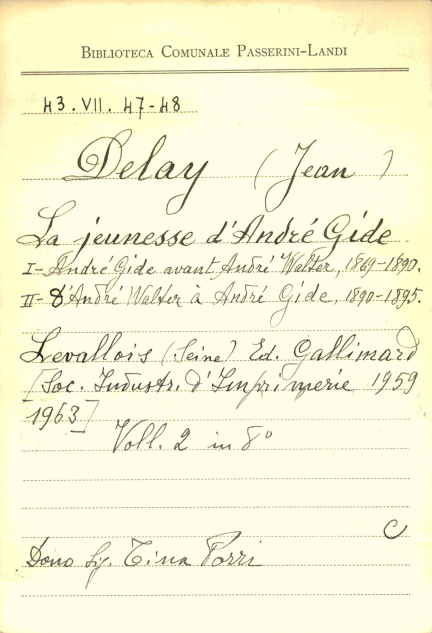 BIBLIOTECA COMUNALE PASSERINI-LANDI
43. VII. 47-48
Delay (Jean)
La jeunesse d'André Gide
I- André Gide avant André Walter, 1869-1890.
II- D'André Walter à André Gide, 1890-1895.
Levallois (Seine) Ed. Gallimard
[Soc. Industr. d'Imprimerie 1959
1963]
Voll. 2 in 8°
C
Dono Sig. Tina Porri